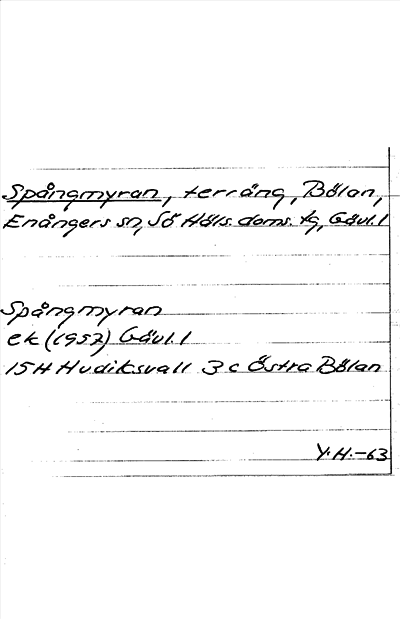 Spångmyran, terräng, Bölan,
Enångers sn, Sö Häls. doms. tg, Gävl. l
Spångmyran
ek (1957) Gävl. l
15H Hudiksvall 3 c Östra Bölan
Y.H.-63